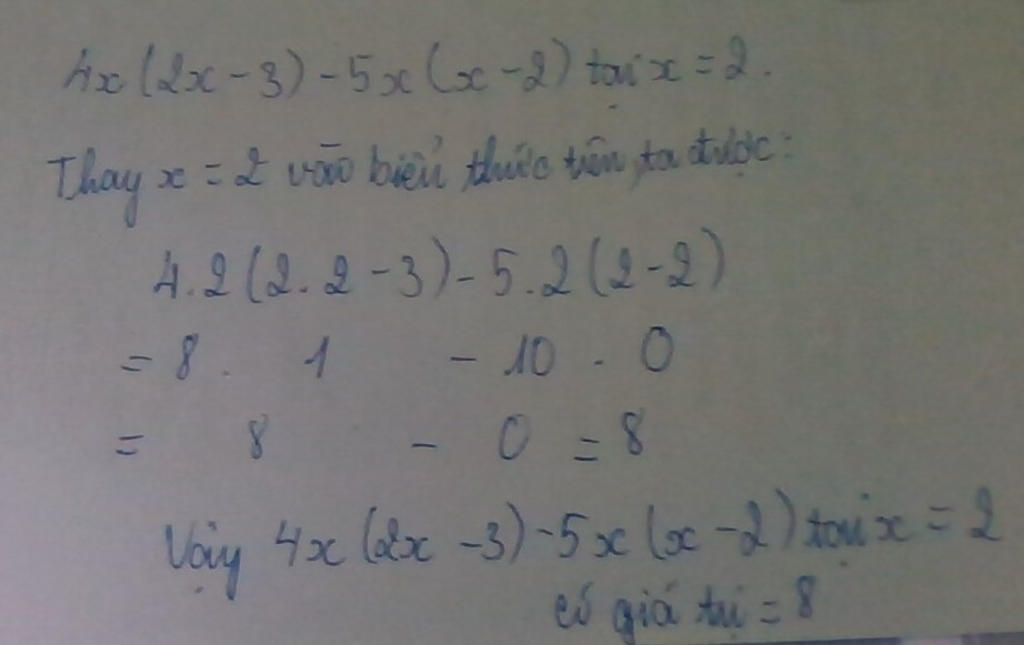 4x(2x-3)-5x(x-2) tại x=2.
Thay x=2 vào biểu thức trên, ta được:
4.2(2.2-3)-5.2(2-2)
= 8 . 1 - 10 . 0
= 8 - 0 = 8
Vậy 4x(2x-3)-5x(x-2) tại x=2
có giá trị = 8